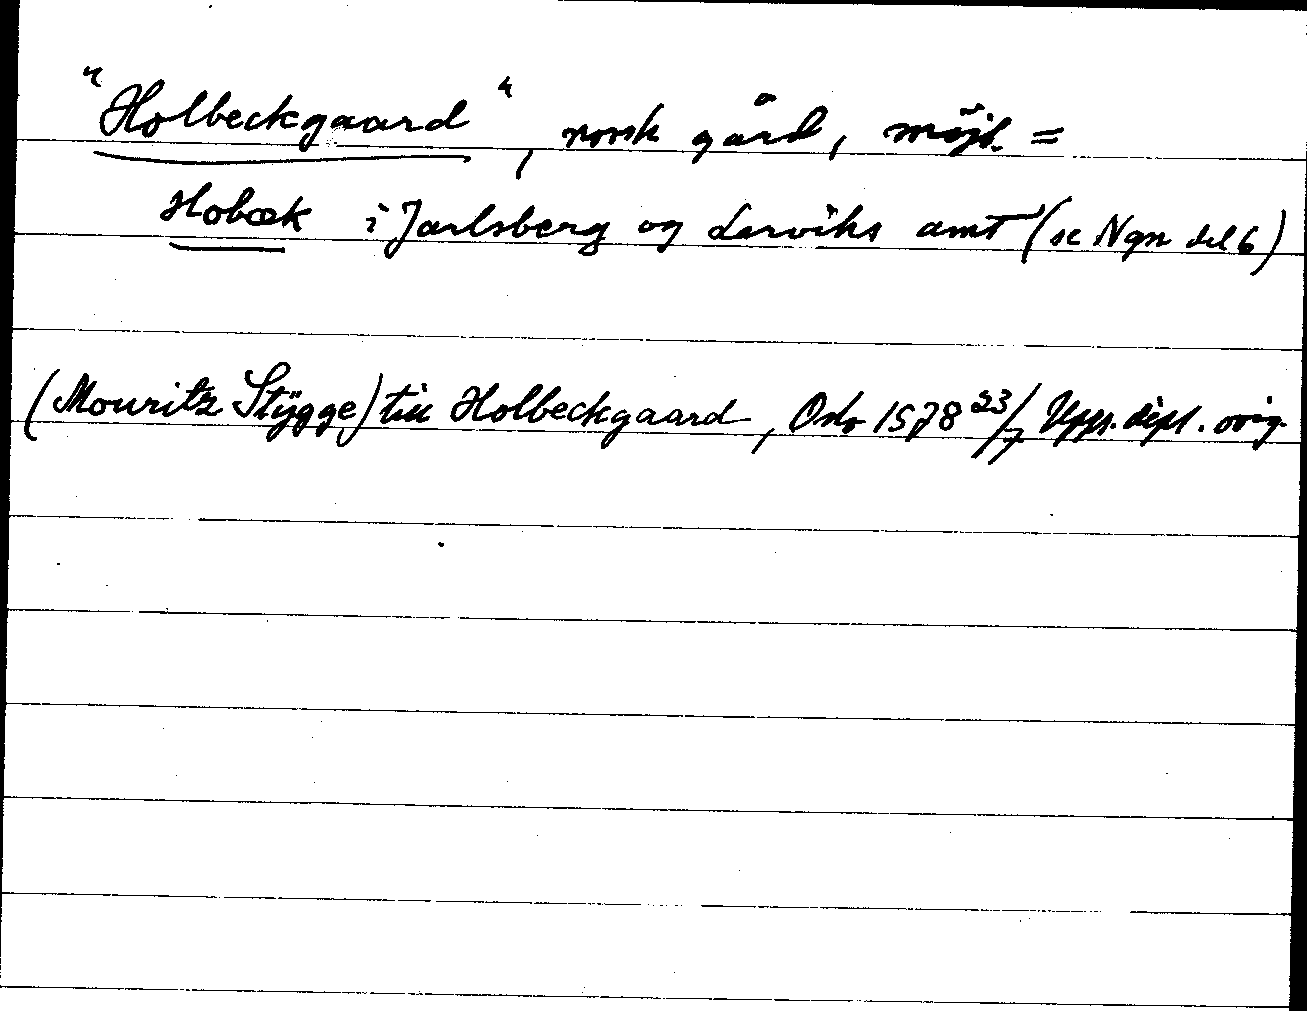 "Holbeckgaard", norsk gård, möjl. =
Hobæk i Jarlsberg og Larviks amt (se Ngn del 6)
(Mouritz Stÿgge) till Holbeckgaard, Oslo 1578 23/7 Upps. dipl. orig.